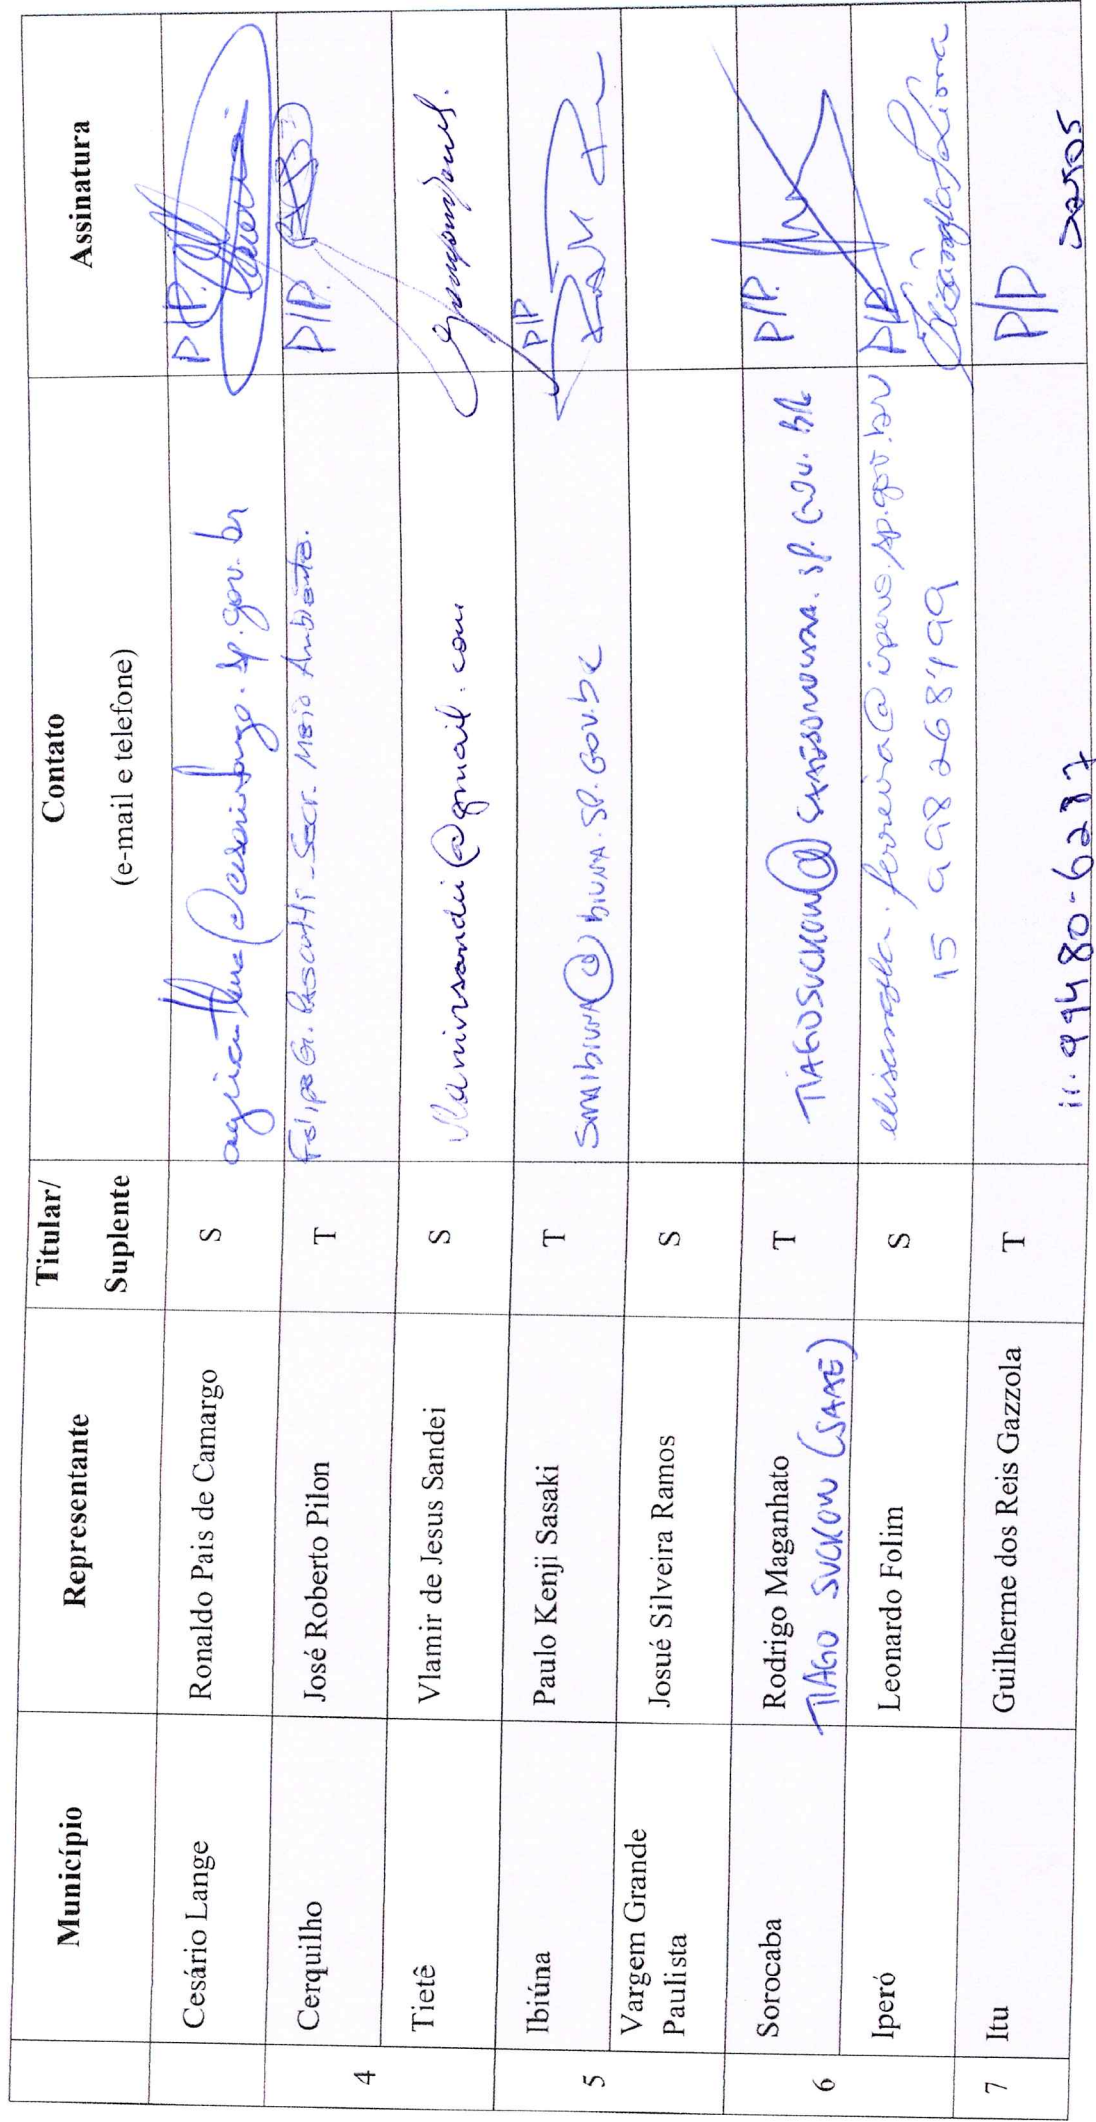 Município Representante Titular/ Suplente Contato (e-mail e telefone) Assinatura
Cesário Lange Ronaldo Pais de Camargo S sp.gov.br P/P.
4 Cerquilho José Roberto Pilon T Felipe G. Pascotti - Secr. Meio Ambiente. P/P.
Tietê Vlamir de Jesus Sandei S vlamirsandei@gmail.com
5 Ibiúna Paulo Kenji Sasaki T SMAIBIUNA@IBIUNA.SP.GOV.BR P/P
Vargem Grande Paulista Josué Silveira Ramos S
6 Sorocaba Rodrigo Maganhato T TIAGOSUCKOW@SAAESOROCABA.SP.GOV.BR P/P.
TIAGO SUCKOW (SAAE)
Iperó Leonardo Folim S elisangela.ferreira@ipero.sp.gov.br P/P
15 998268499
7 Itu Guilherme dos Reis Gazzola T P/P
11. 99480-6287